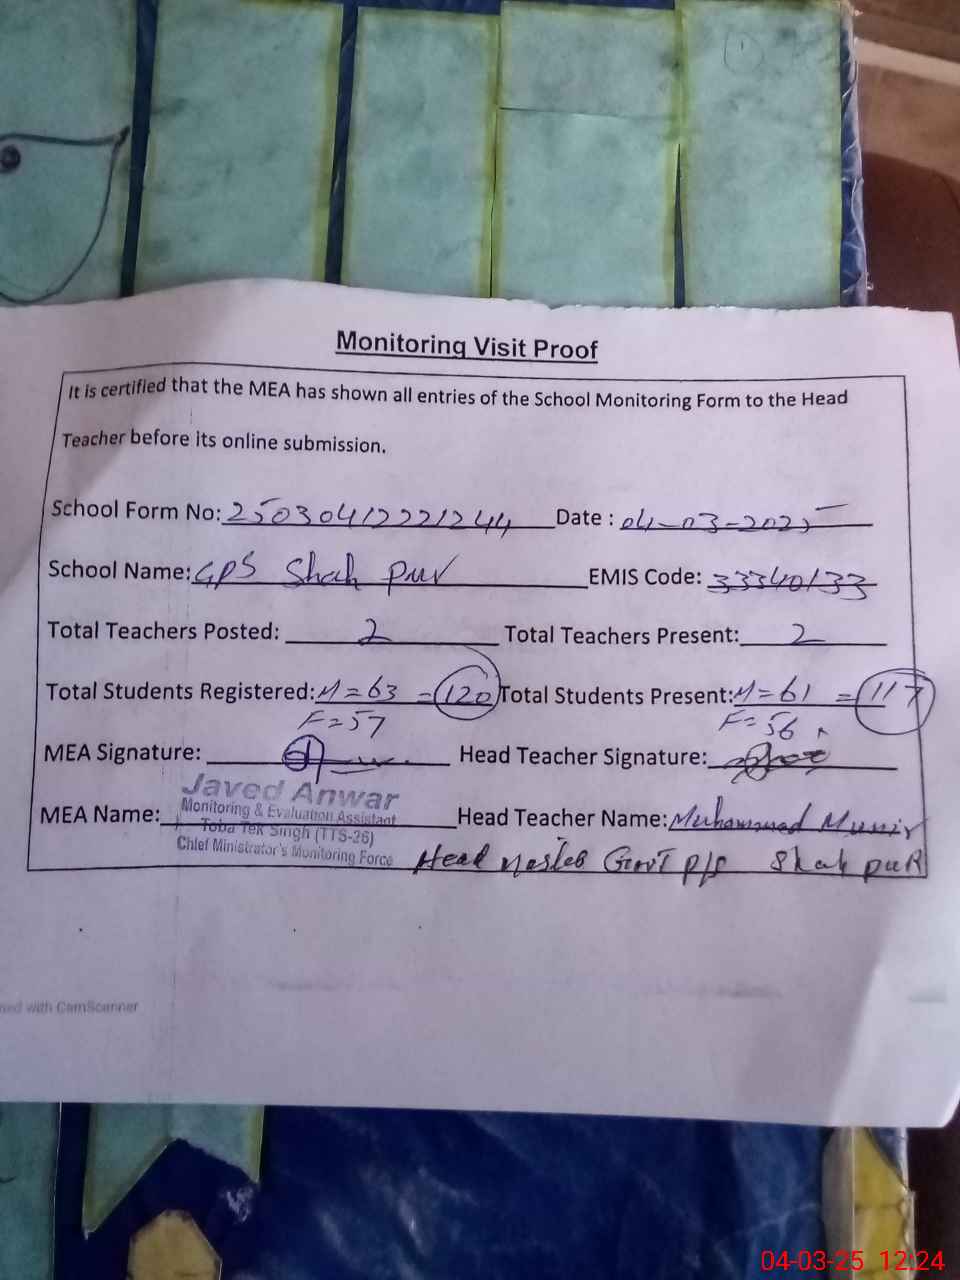 1
Monitoring Visit Proof
It is certified that the MEA has shown all entries of the School Monitoring Form to the Head
Teacher before its online submission.
School Form No: 25030412221244 Date : 04-03-2025
School Name: GPS Shah pur EMIS Code: 33340133
Total Teachers Posted: 2 Total Teachers Present: 2
Total Students Registered: M=63 = 120 Total Students Present: M=61 = 117
F=57 F=56
MEA Signature: Head Teacher Signature:
Javed Anwar
Monitoring & Evaluation Assistant
MEA Name: Head Teacher Name: Muhammad Munir
Toba Tek Singh (TTS-26)
Chief Ministrator's Monitoring Force
Head Master Govt P/S Shah puR
with CamScanner
04-03-25 12:24